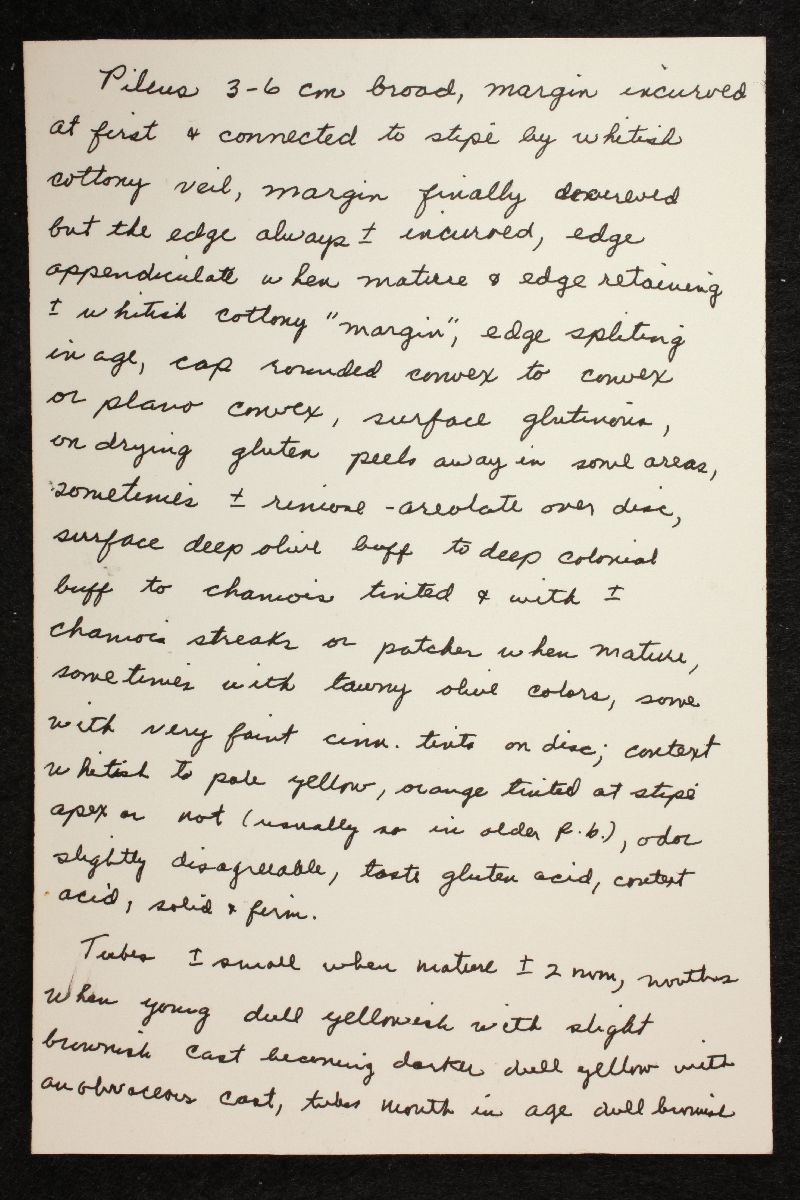 Pileus 3-6 cm broad, margin incurved
at first & connected to stipe by whitish
cottony veil, margin finally decurved
but the edge always ± incurved, edge
appendiculate when mature & edge retaining
± whitish cottony "margin", edge spliting
in age, cap rounded convex to convex
or plano convex, surface glutinous,
on drying gluten peels away in some areas,
sometimes ± rimose-areolate over disc,
surface deep olive buff to deep colonial
buff to chamois tinted & with ±
chamois streaks or patches when mature,
sometimes with tawny olive colors, some
with very faint cinn. tints on disc; context
whitish to pale yellow, orange tinted at stipe
apex or not (usually so in older f.b.), odor
slightly disagreeable, taste gluten acid, context
acid, solid & firm.
Tubes ± small when mature ± 2 mm, mouths
when young dull yellowish with slight
brownish cast becoming darker dull yellow with
an olivaceous cast, tubes mouth in age dull brownish